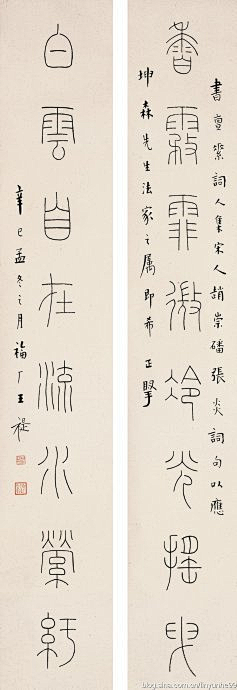 香霧霏微冷光搖曳
書亶素詞人集宋人趙崇磻張炎詞句以應
坤森先生法家之屬即希 正掔
白雲自在流水縈紆
辛巳孟冬之月福厂王禔
blog.sina.com.cn/linyunhe99